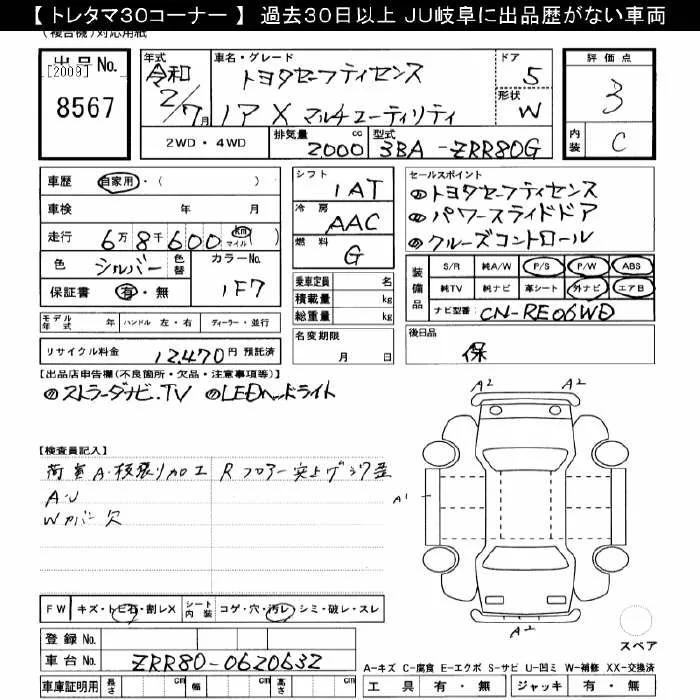 【トレタマ30コーナー】 過去30日以上 JU岐阜に出品歴がない車両
(複合機)対応用紙
出品 No. [2009] 8567
年式 令和 2/7月
車名・グレード トヨタセーフティセンス
ノア X マルチユーティリティ
ドア 5
形状 W
評価点 3
内装 C
2WD・4WD
排気量 2000 cc
型式 3BA-ZRR80G
車歴 自家用・( )
車検 年 月
走行 6万8千600 km マイル ( )
色 シルバー 色替
カラーNo. 1F7
保証書 有・無
シフト 1AT
冷房 AAC
燃料 G
乗車定員 名
積載量 kg
総重量 kg
セールスポイント
トヨタセーフティセンス
パワースライドドア
クルーズコントロール
装備品 S/R 純A/W P/S P/W ABS
純TV 純ナビ 革シート 外ナビ エアB
ナビ型番: CN-RE06WD
モデル年式 年 ハンドル 左・右 ディーラー・並行
名変期限 月 日
後日品 保
リサイクル料金 12,470円 預託済
【出品店申告欄(不良箇所・欠品・注意事項等)】
ストラーダナビ.TV LEDヘッドライト
【検査員記入】
荷室A・板張り加工 Rフロアー突上ゲ
A・U
Wカバー欠
A2 A2
A1
A2
FW キズ・トビ石・割レX シート内装 コゲ・穴・汚レ・シミ・破レ・スレ
スペア
登録 No.
車台 No. ZRR80-0620632
A-キズ C-腐食 E-エクボ S-サビ U-凹ミ W-補修 XX-交換済
車庫証明用 長さ cm 幅 cm 高さ cm
工具 有・無 ジャッキ 有・無